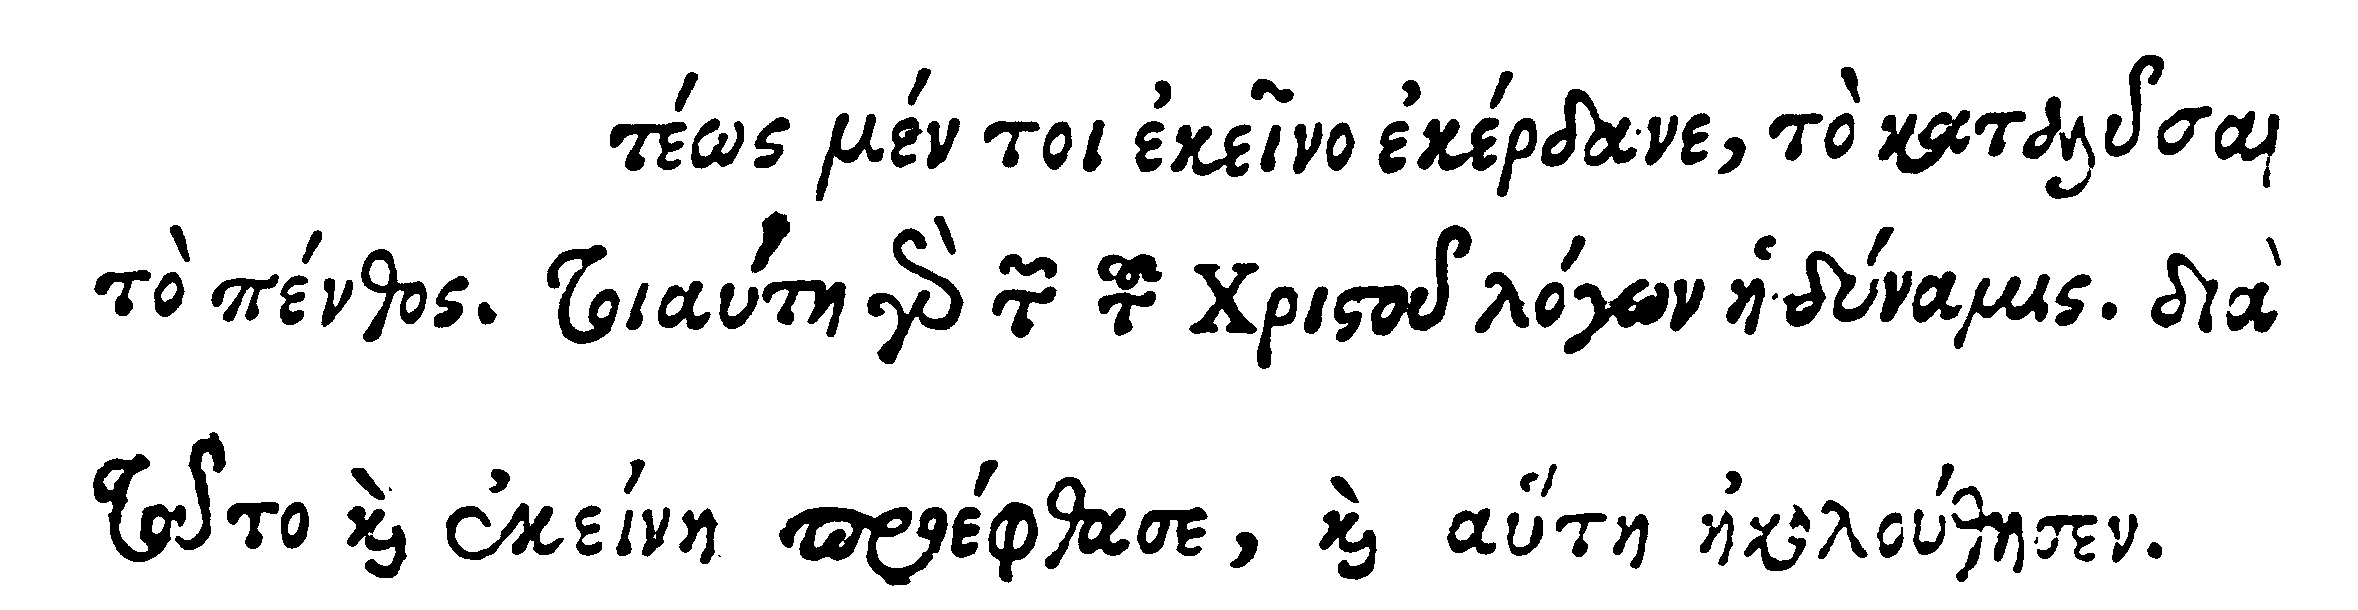 τέως μέν τοι ἐκεῖνο ἐκέρδανε, τὸ καταλῦσαι
τὸ πένθος. Τοιαύτη γὰρ τῶν τοῦ Χριστοῦ λόγων ἡ δύναμις. διὰ
τοῦτο καὶ ἐκείνη προέφθασε, καὶ αὕτη ἠκολούθησεν.